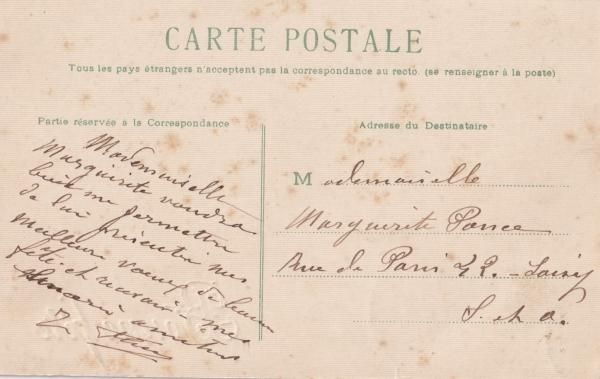 CARTE POSTALE
Tous les pays étrangers n'acceptent pas la correspondance au recto. (se renseigner à la poste)
Partie réservée à la Correspondance
Mademoiselle
Marguerite voudra
bien me permettre
de lui présenter mes
meilleurs vœux de bonne
fête et
Adresse du Destinataire
Mademoiselle
Marguerite Ponce
Rue de Paris 42. -
S. et O.